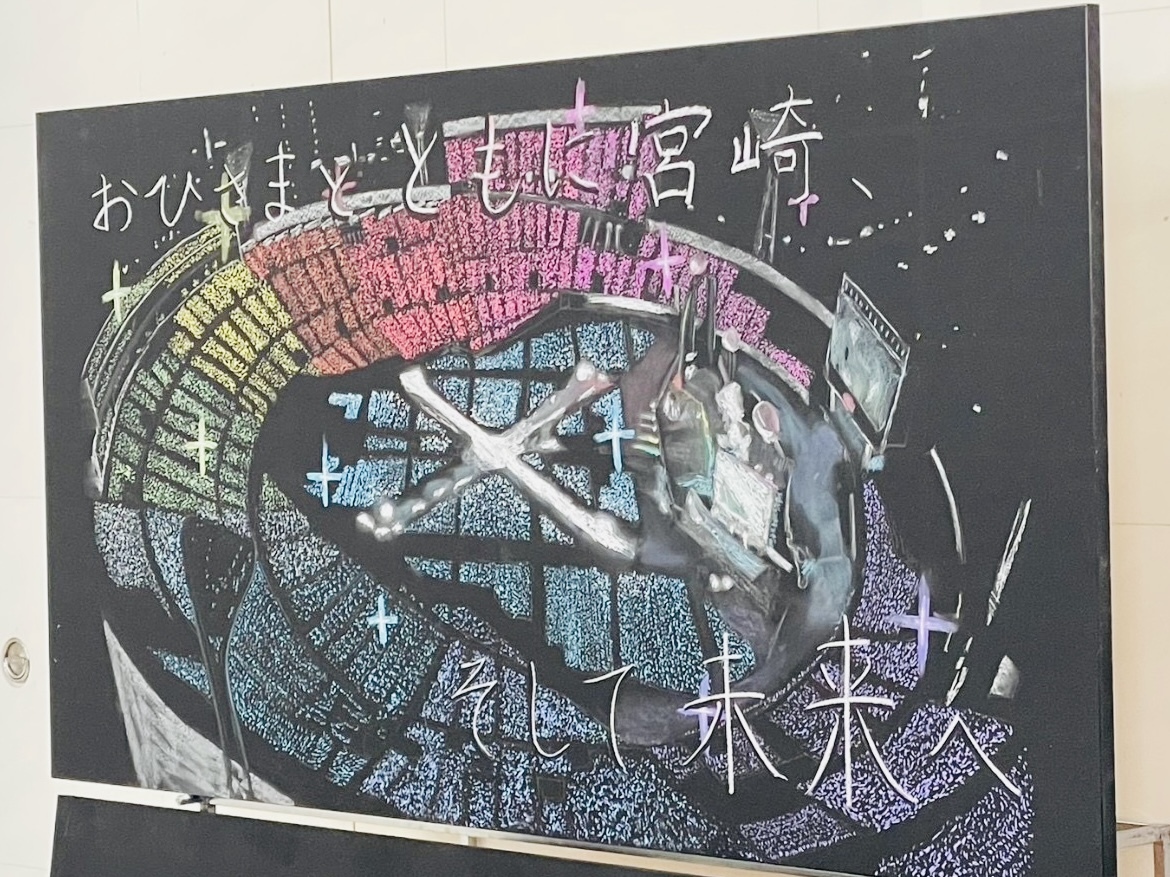 おひさまとともに宮崎、
そして未来へ